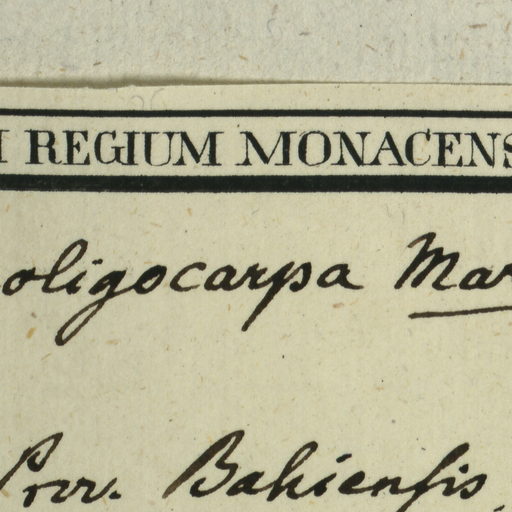 I REGIUM MONACENS
oligocarpa Mar
Prov. Bahiensis